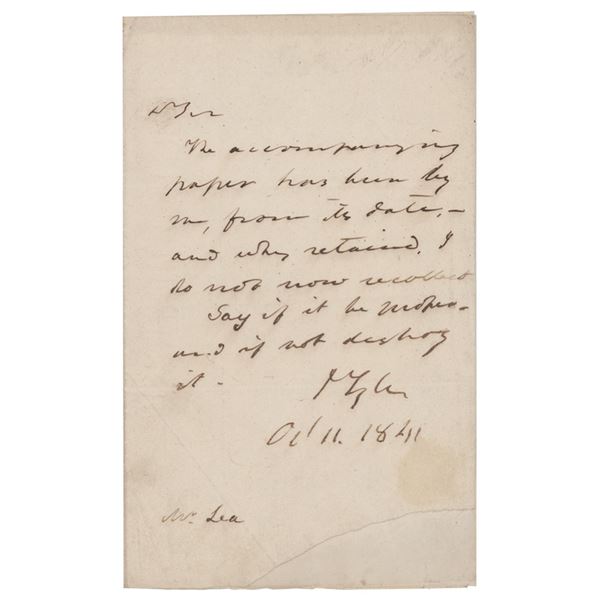 Dr Sir
The accompanying
paper has been by
me, from its date, –
and why retained, I
do not now recollect
Say if it be proper –
and if not destroy
it –
J Tyler
Oct 11. 1841
Mr. Lea